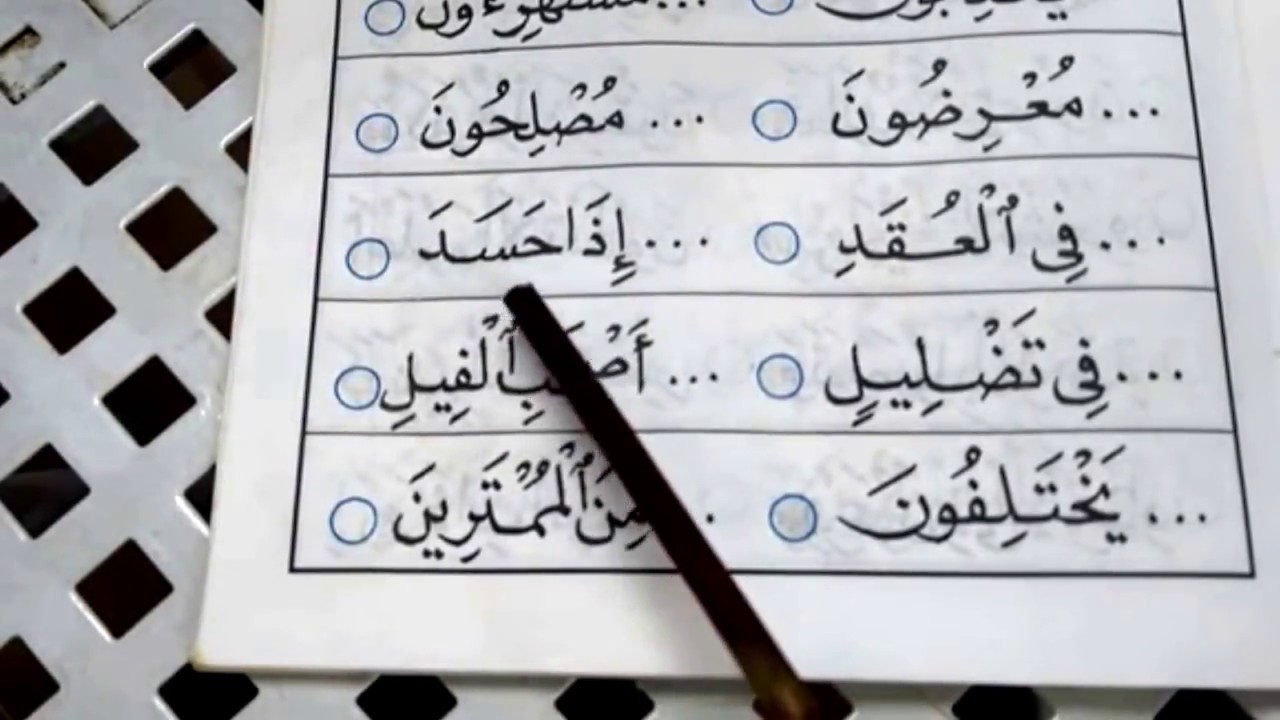 ... مُعْرِضُونَ ○ ... مُصْلِحُونَ ○
... فِى ٱلْعُقَدِ ○ ... إِذَا حَسَدَ ○
... فِى تَضْلِيلٍ ○ ... ٱلْفِيلِ ○
... يَخْتَلِفُونَ ○ ... مِنَ ٱلْمُمْتَرِينَ ○